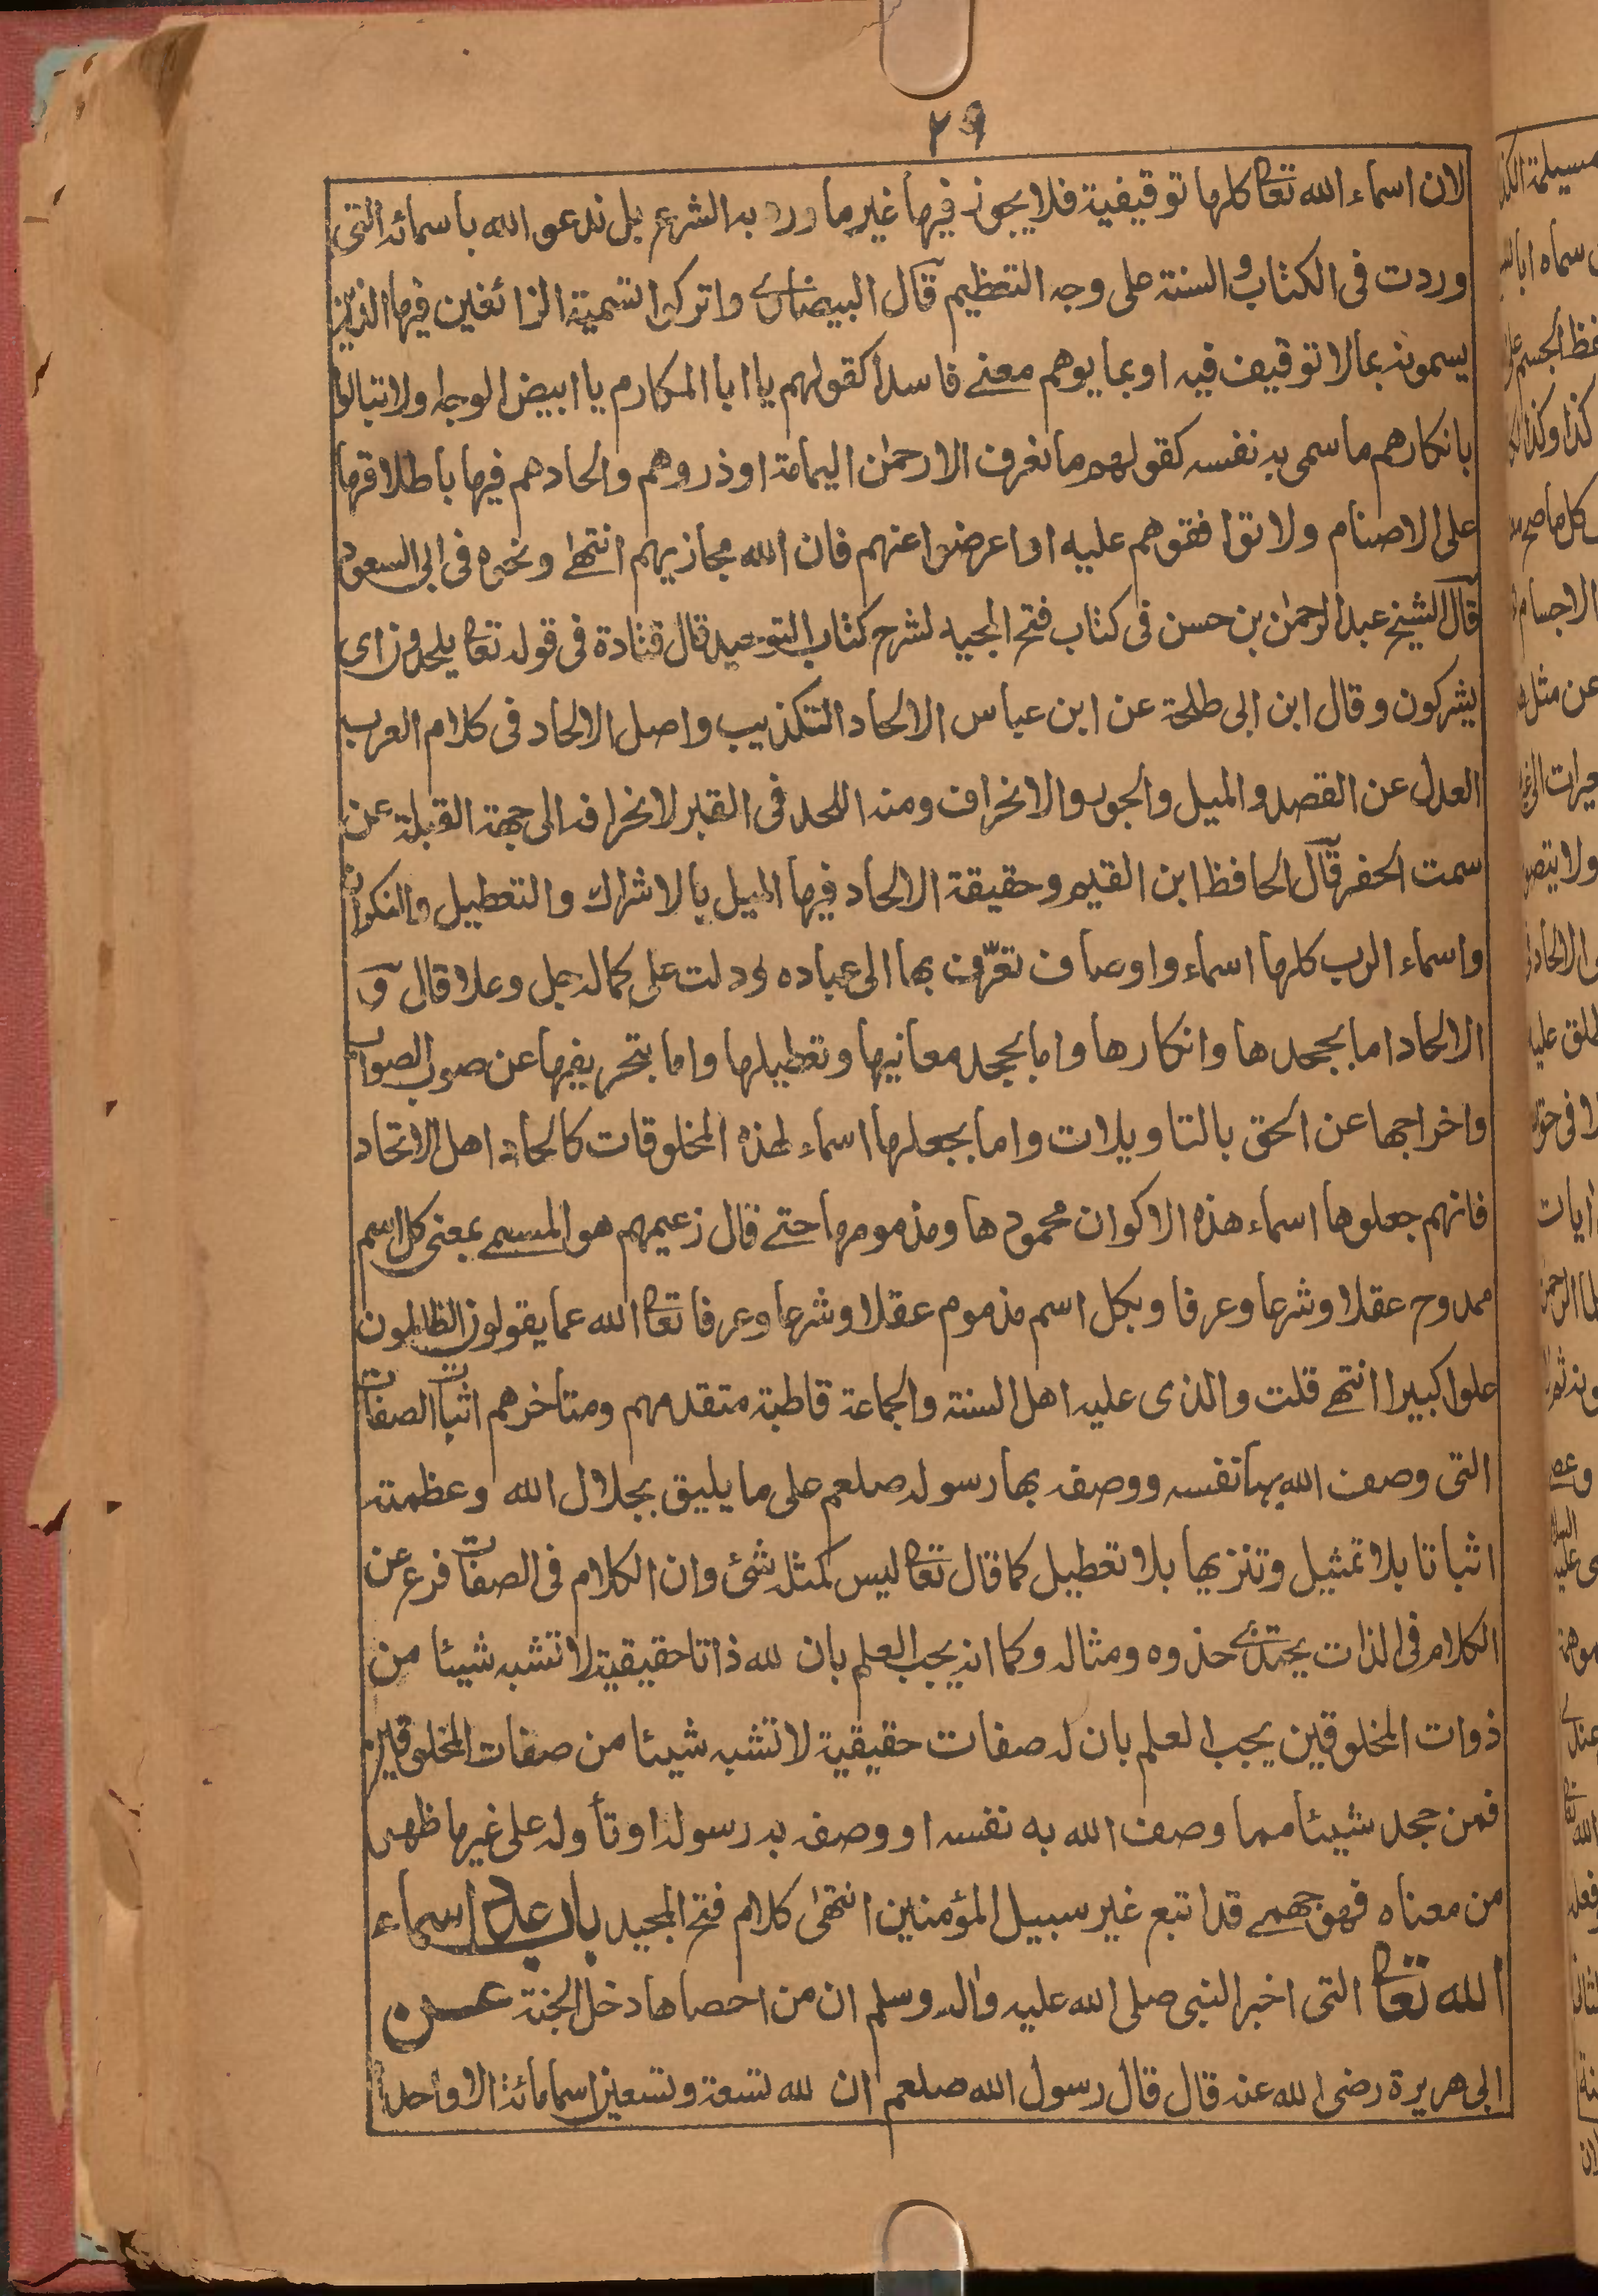 ٢٩
لان اسماء الله تعا كلها توقيفية فلا يجوز فيها غير ما ورد به الشرع بل ندعو الله باسمائه التى
وردت فى الكتاب والسنة على وجه التعظيم قال البيضاوى واتركوا تسمية الزائغين فيها الذين
يسمونه بمالا توقيف فيه او بما يوهم معنے فاسدا كقولهم يا ابا المكارم يا ابيض الوجه ولا تبالوا
بانكارهم ما سمى به نفسه كقولهم ما نعرف الا رحمن اليمامة او ذروهم والحادهم فيها باطلاقها
على الاصنام ولا توافقوهم عليه او اعرضوا عنهم فان الله مجازيهم انتهے ونحوه فى ابى السعود
قال الشيخ عبد الرحمن بن حسن فى كتاب فتح المجيد لشرح كتاب التوحيد قال قتادة فى قوله تعا يلحدون اى
يشركون وقال ابن ابى طلحة عن ابن عباس الالحاد التكذيب واصل الالحاد فى كلام العرب
العدل عن القصد والميل والجور والانحراف ومنه اللحد فى القبر لانحرافه الى جهة القبلة عن
سمت الحفر قال الحافظ ابن القيم وحقيقة الالحاد فيها الميل بالاشراك والتعطيل والنكران
واسماء الرب كلها اسماء واوصاف تعرّف بها الى عباده ودلت على كماله جل وعلا قال و
الالحاد اما بجحدها وانكارها واما بجحد معانيها وتعطيلها واما بتحريفها عن صوب الصواب
واخراجها عن الحق بالتاويلات واما بجعلها اسماء لهذه المخلوقات كالحاد اهل الاتحاد
فانهم جعلوها اسماء هذه الاكوان محمودها ومذمومها حتے قال زعيمهم هو المسمے بمعنى كل اسم
ممدوح عقلا وشرعا وعرفا وبكل اسم مذموم عقلا وشرعا وعرفا تعا الله عما يقولون الظالمون
علوا كبيرا انتهے قلت والذى عليه اهل السنة والجماعة قاطبة متقدمهم ومتأخرهم اثبات الصفات
التى وصف الله بها نفسه ووصفه بها رسوله صلعم على ما يليق بجلال الله وعظمته
اثباتا بلا تمثيل وتنزيها بلا تعطيل كما قال تعا ليس كمثله شئ وان الكلام فى الصفات فرع عن
الكلام فى الذات يحتذى حذوه ومثاله وكما انه يجب العلم بان لله ذاتا حقيقية لا تشبه شيئا من
ذوات المخلوقين يجب العلم بان له صفات حقيقية لا تشبه شيئا من صفات المخلوقين
فمن جحد شيئا مما وصف الله به نفسه او وصفه به رسوله او تأوله على غير ما ظهر
من معناه فهو جهمے قد اتبع غير سبيل المؤمنين انتهى كلام فتح المجيد باب عدد اسماء
الله تعا التى اخبر النبى صلى الله عليه واله وسلم ان من احصاها دخل الجنة عن
ابى هريرة رضى الله عنه قال قال رسول الله صلعم ان لله تسعة وتسعين اسما مائة الا واحدا